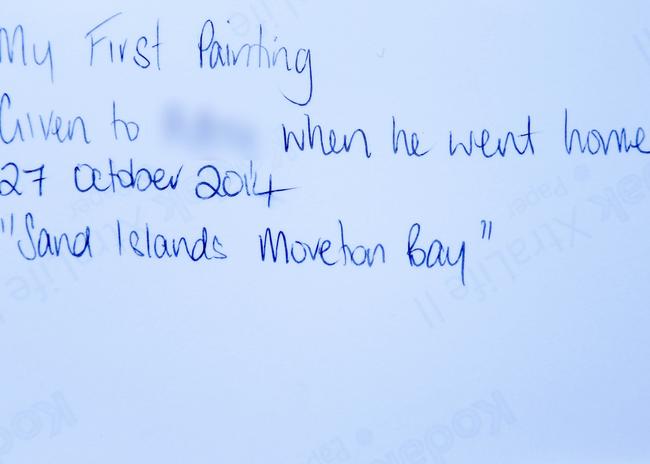 My First Painting
Given to when he went home
27 October 2014
"Sand Islands Moreton Bay"
Kodak XtraLife II
Paper
Kodak